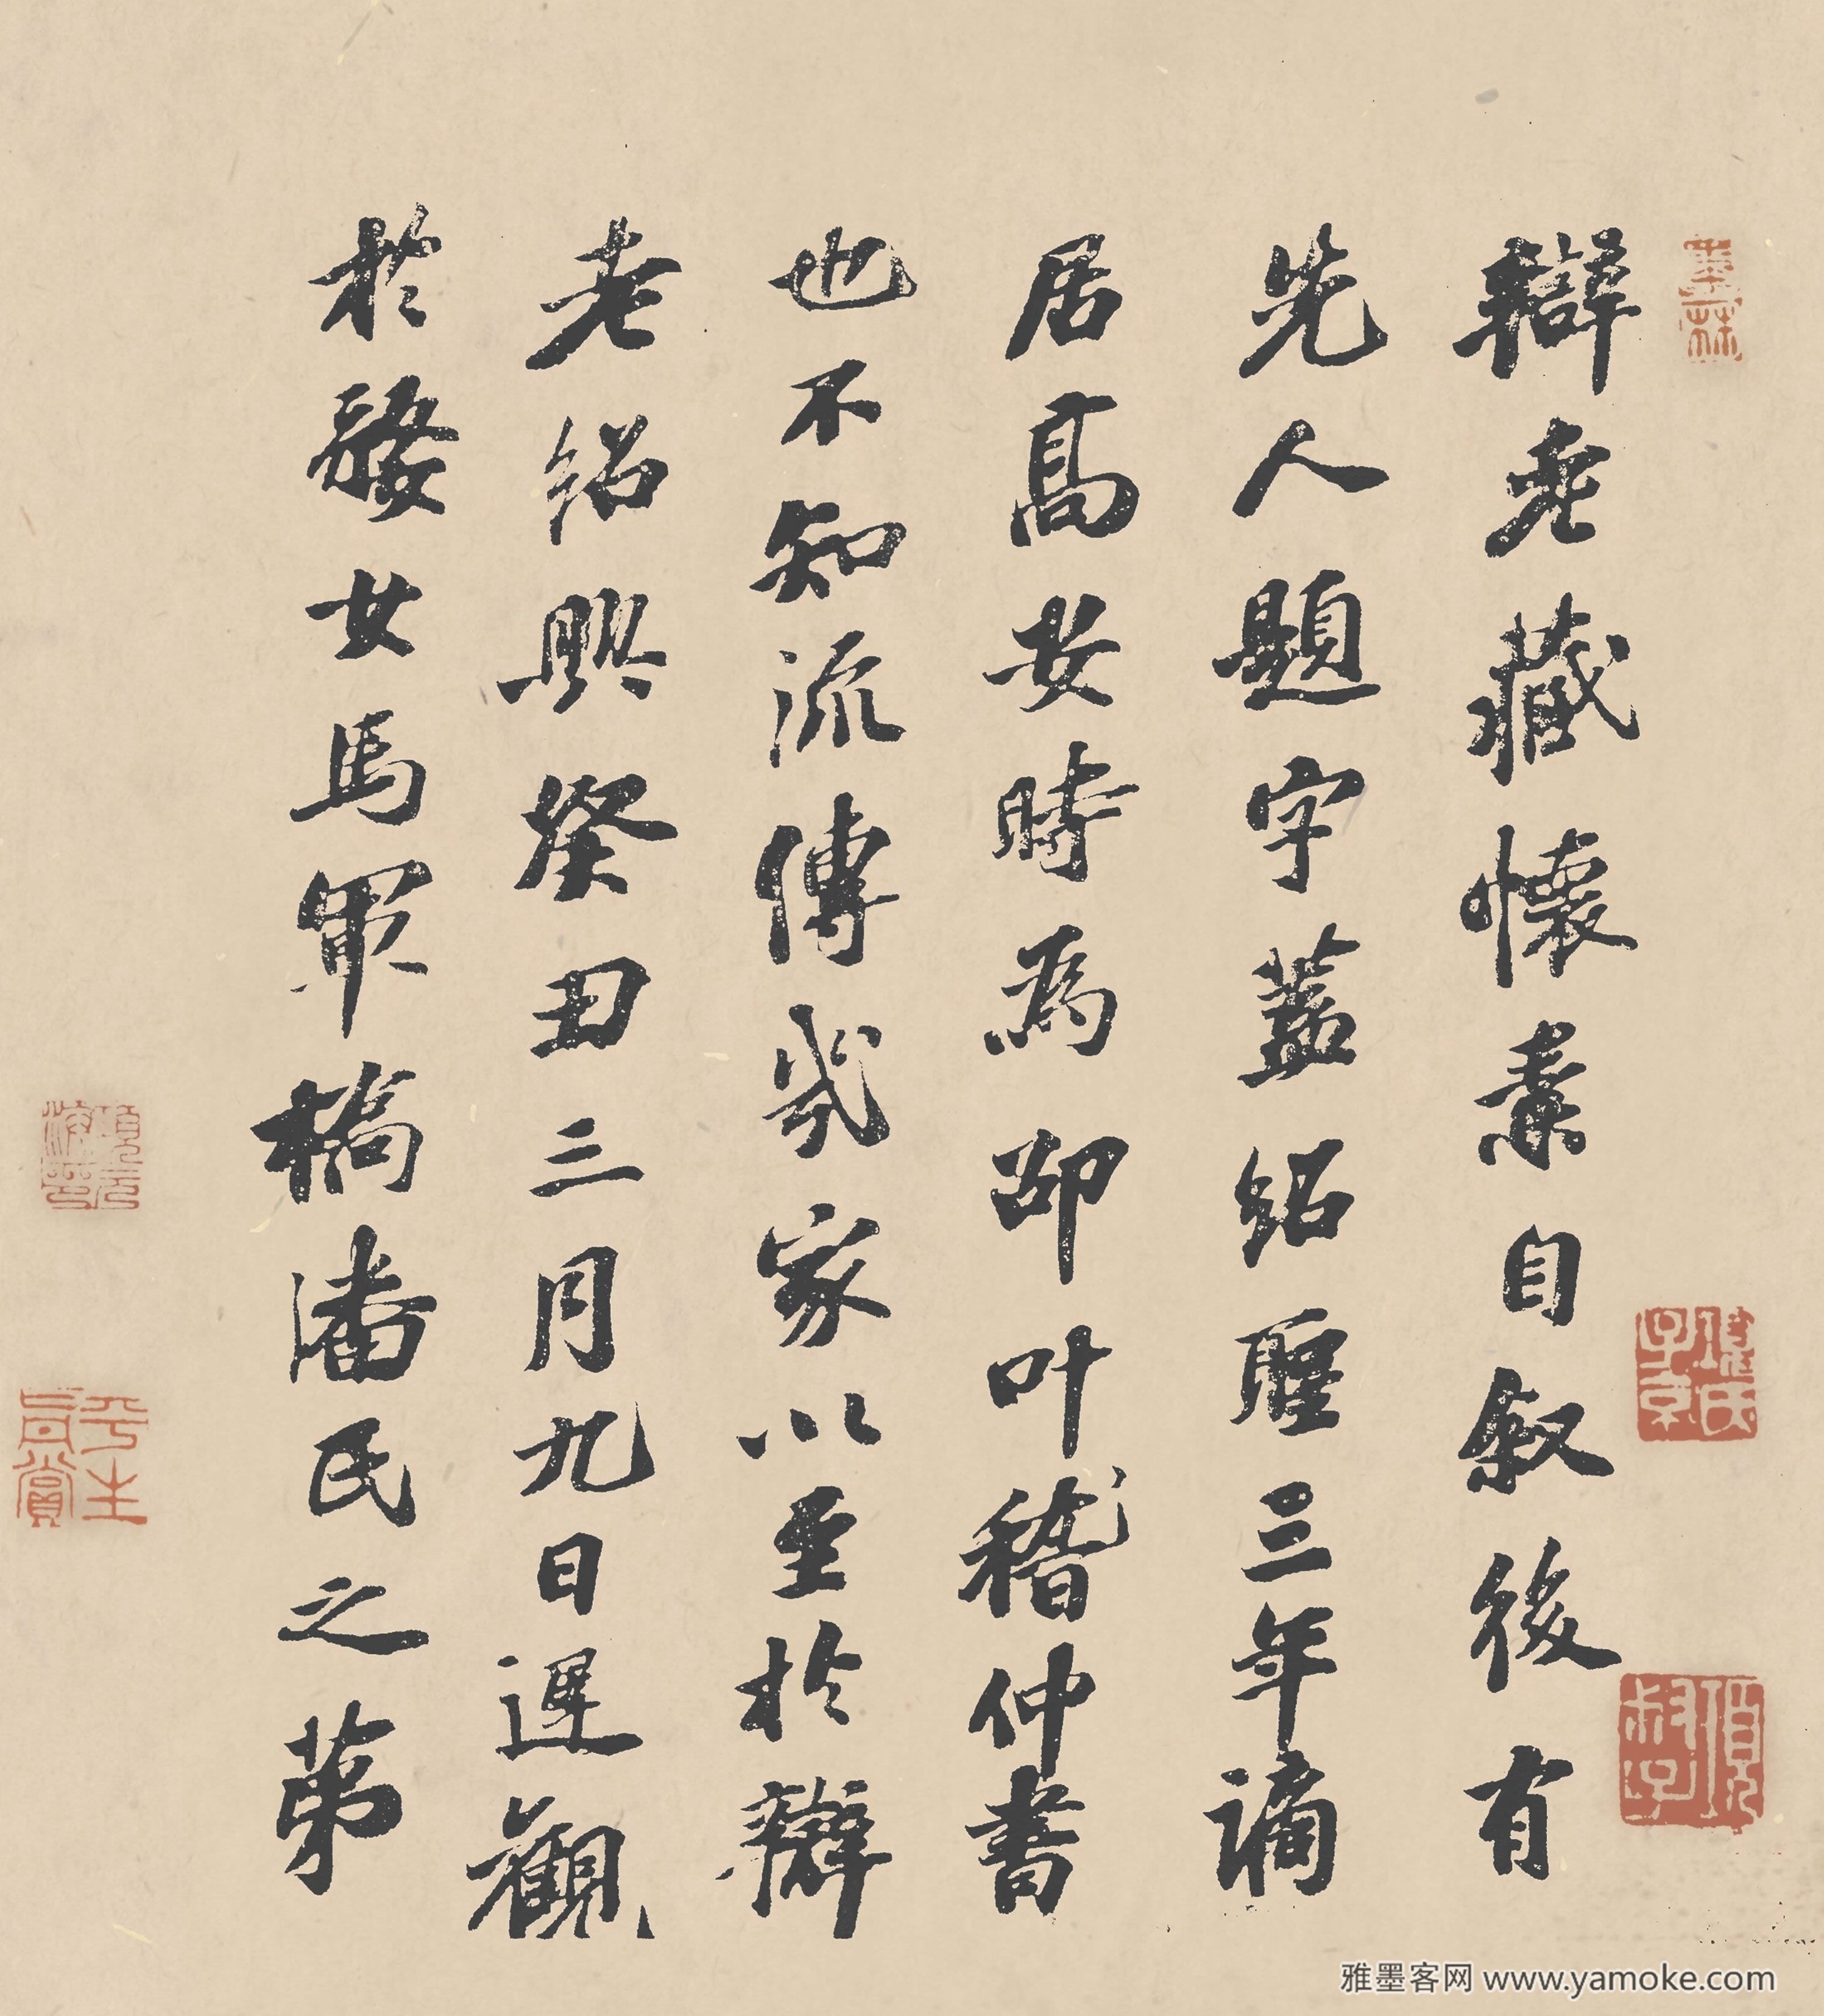 辯老藏懷素自叙後有
先人題字蓋紹聖三年謫
居高安時為邵叶稽仲書
也不知流傳幾家以至於辯
老紹興癸丑三月九日遲觀
於婺女馬軍橋潘氏之第
項元汴印
平生真賞
項氏子京
雅墨客网 www.yamoke.com